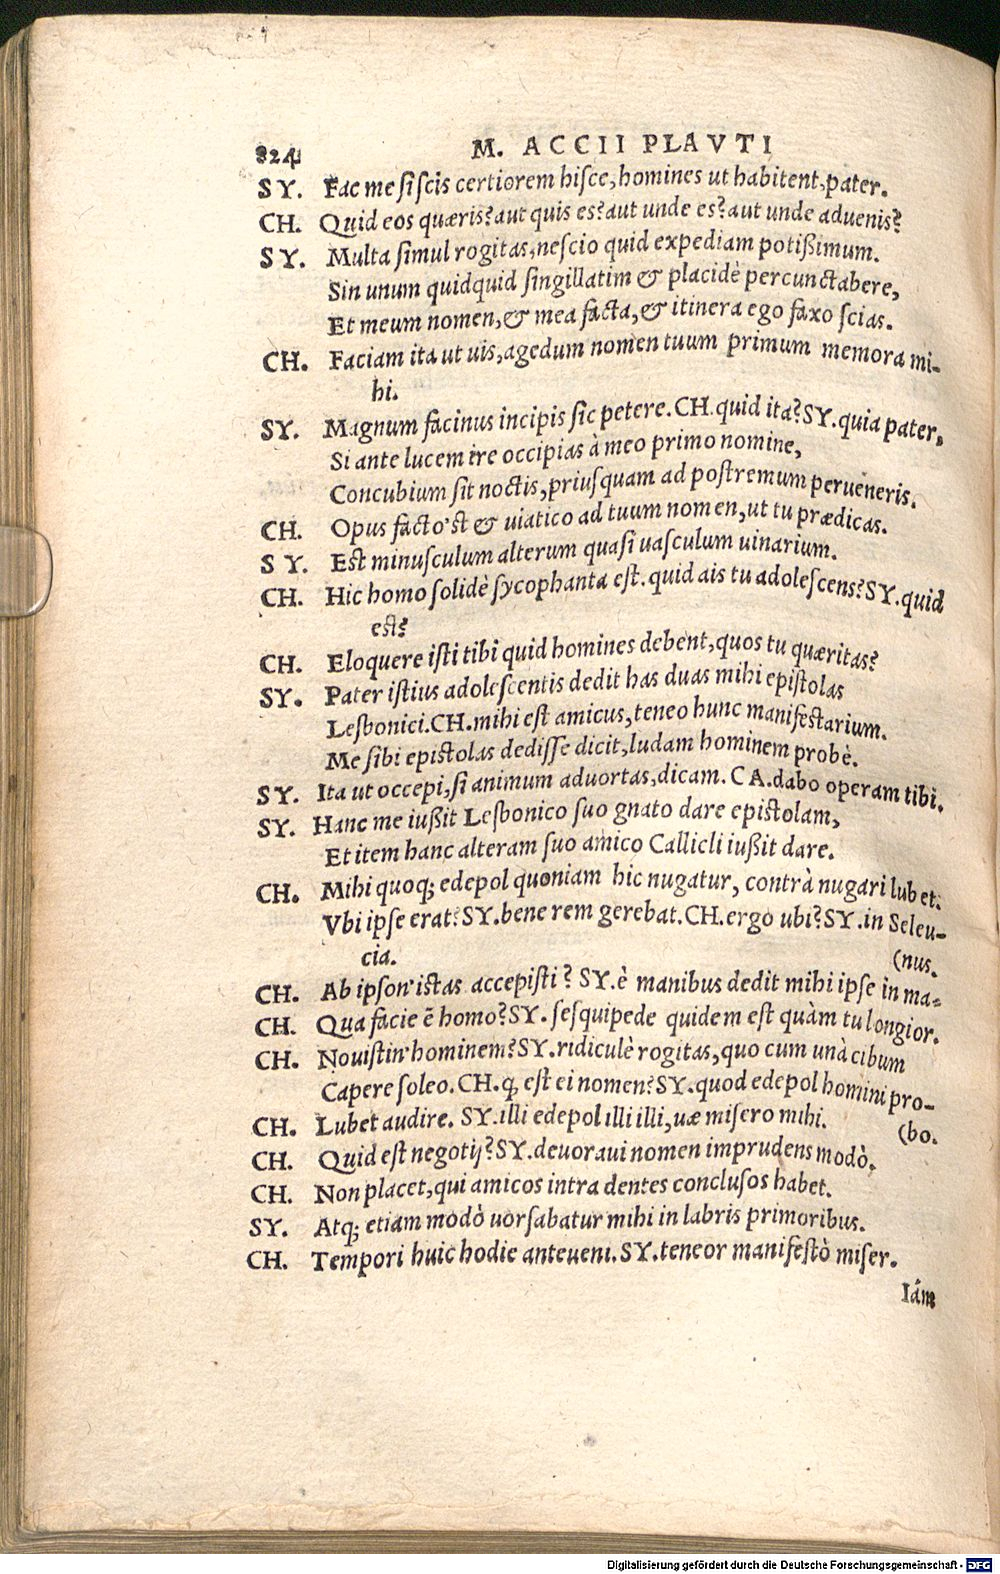 824 M. ACCII PLAVTI
SY. Fac me si scis certiorem hisce, homines ut habitent, pater.
CH. Quid eos quæris? aut quis es? aut unde es? aut unde aduenis?
SY. Multa simul rogitas, nescio quid expediam potißimum.
Sin unum quidquid singillatim & placidè percunctabere,
Et meum nomen, & mea facta, & itinera ego faxo scias.
CH. Faciam ita ut uis, agedum nomen tuum primum memora mi-
hi.
SY. Magnum facinus incipis sic petere. CH. quid ita? SY. quia pater,
Si ante lucem ire occipias à meo primo nomine,
Concubium sit noctis, priusquam ad postremum perueneris.
CH. Opus facto'st & uiatico ad tuum nomen, ut tu prædicas.
SY. Est minusculum alterum quasi uasculum uinarium.
CH. Hic homo solidè sycophanta est. quid ais tu adolescens? SY. quid
est?
CH. Eloquere isti tibi quid homines debent, quos tu quæritas?
SY. Pater istius adolescentis dedit has duas mihi epistolas
Lesbonici. CH. mihi est amicus, teneo hunc manifestarium.
Me sibi epistolas dedisse dicit, ludam hominem probè.
SY. Ita ut occepi, si animum aduortas, dicam. CA. dabo operam tibi.
SY. Hanc me iußit Lesbonico suo gnato dare epistolam,
Et item hanc alteram suo amico Callicli iußit dare.
CH. Mihi quoq; edepol quoniam hic nugatur, contrà nugari lubet.
Vbi ipse erat? SY. bene rem gerebat. CH. ergo ubi? SY. in Seleu-
cia. (nus.
CH. Ab ipson' istas accepisti? SY. è manibus dedit mihi ipse in ma-
CH. Qua facie ē homo? SY. sesquipede quidem est quàm tu longior.
CH. Nouistin' hominem? SY. ridiculè rogitas, quo cum unà cibum
Capere soleo. CH. q̨ est ei nomen? SY. quod edepol homini pro-
CH. Lubet audire. SY. illi edepol illi illi, uæ misero mihi. (bo.
CH. Quid est negotij? SY. deuoraui nomen imprudens modò.
CH. Non placet, qui amicos intra dentes conclusos habet.
SY. Atq; etiam modò uorsabatur mihi in labris primoribus.
CH. Tempori huic hodie anteueni. SY. teneor manifestò miser.
Iám
Digitalisierung gefördert durch die Deutsche Forschungsgemeinschaft - DFG